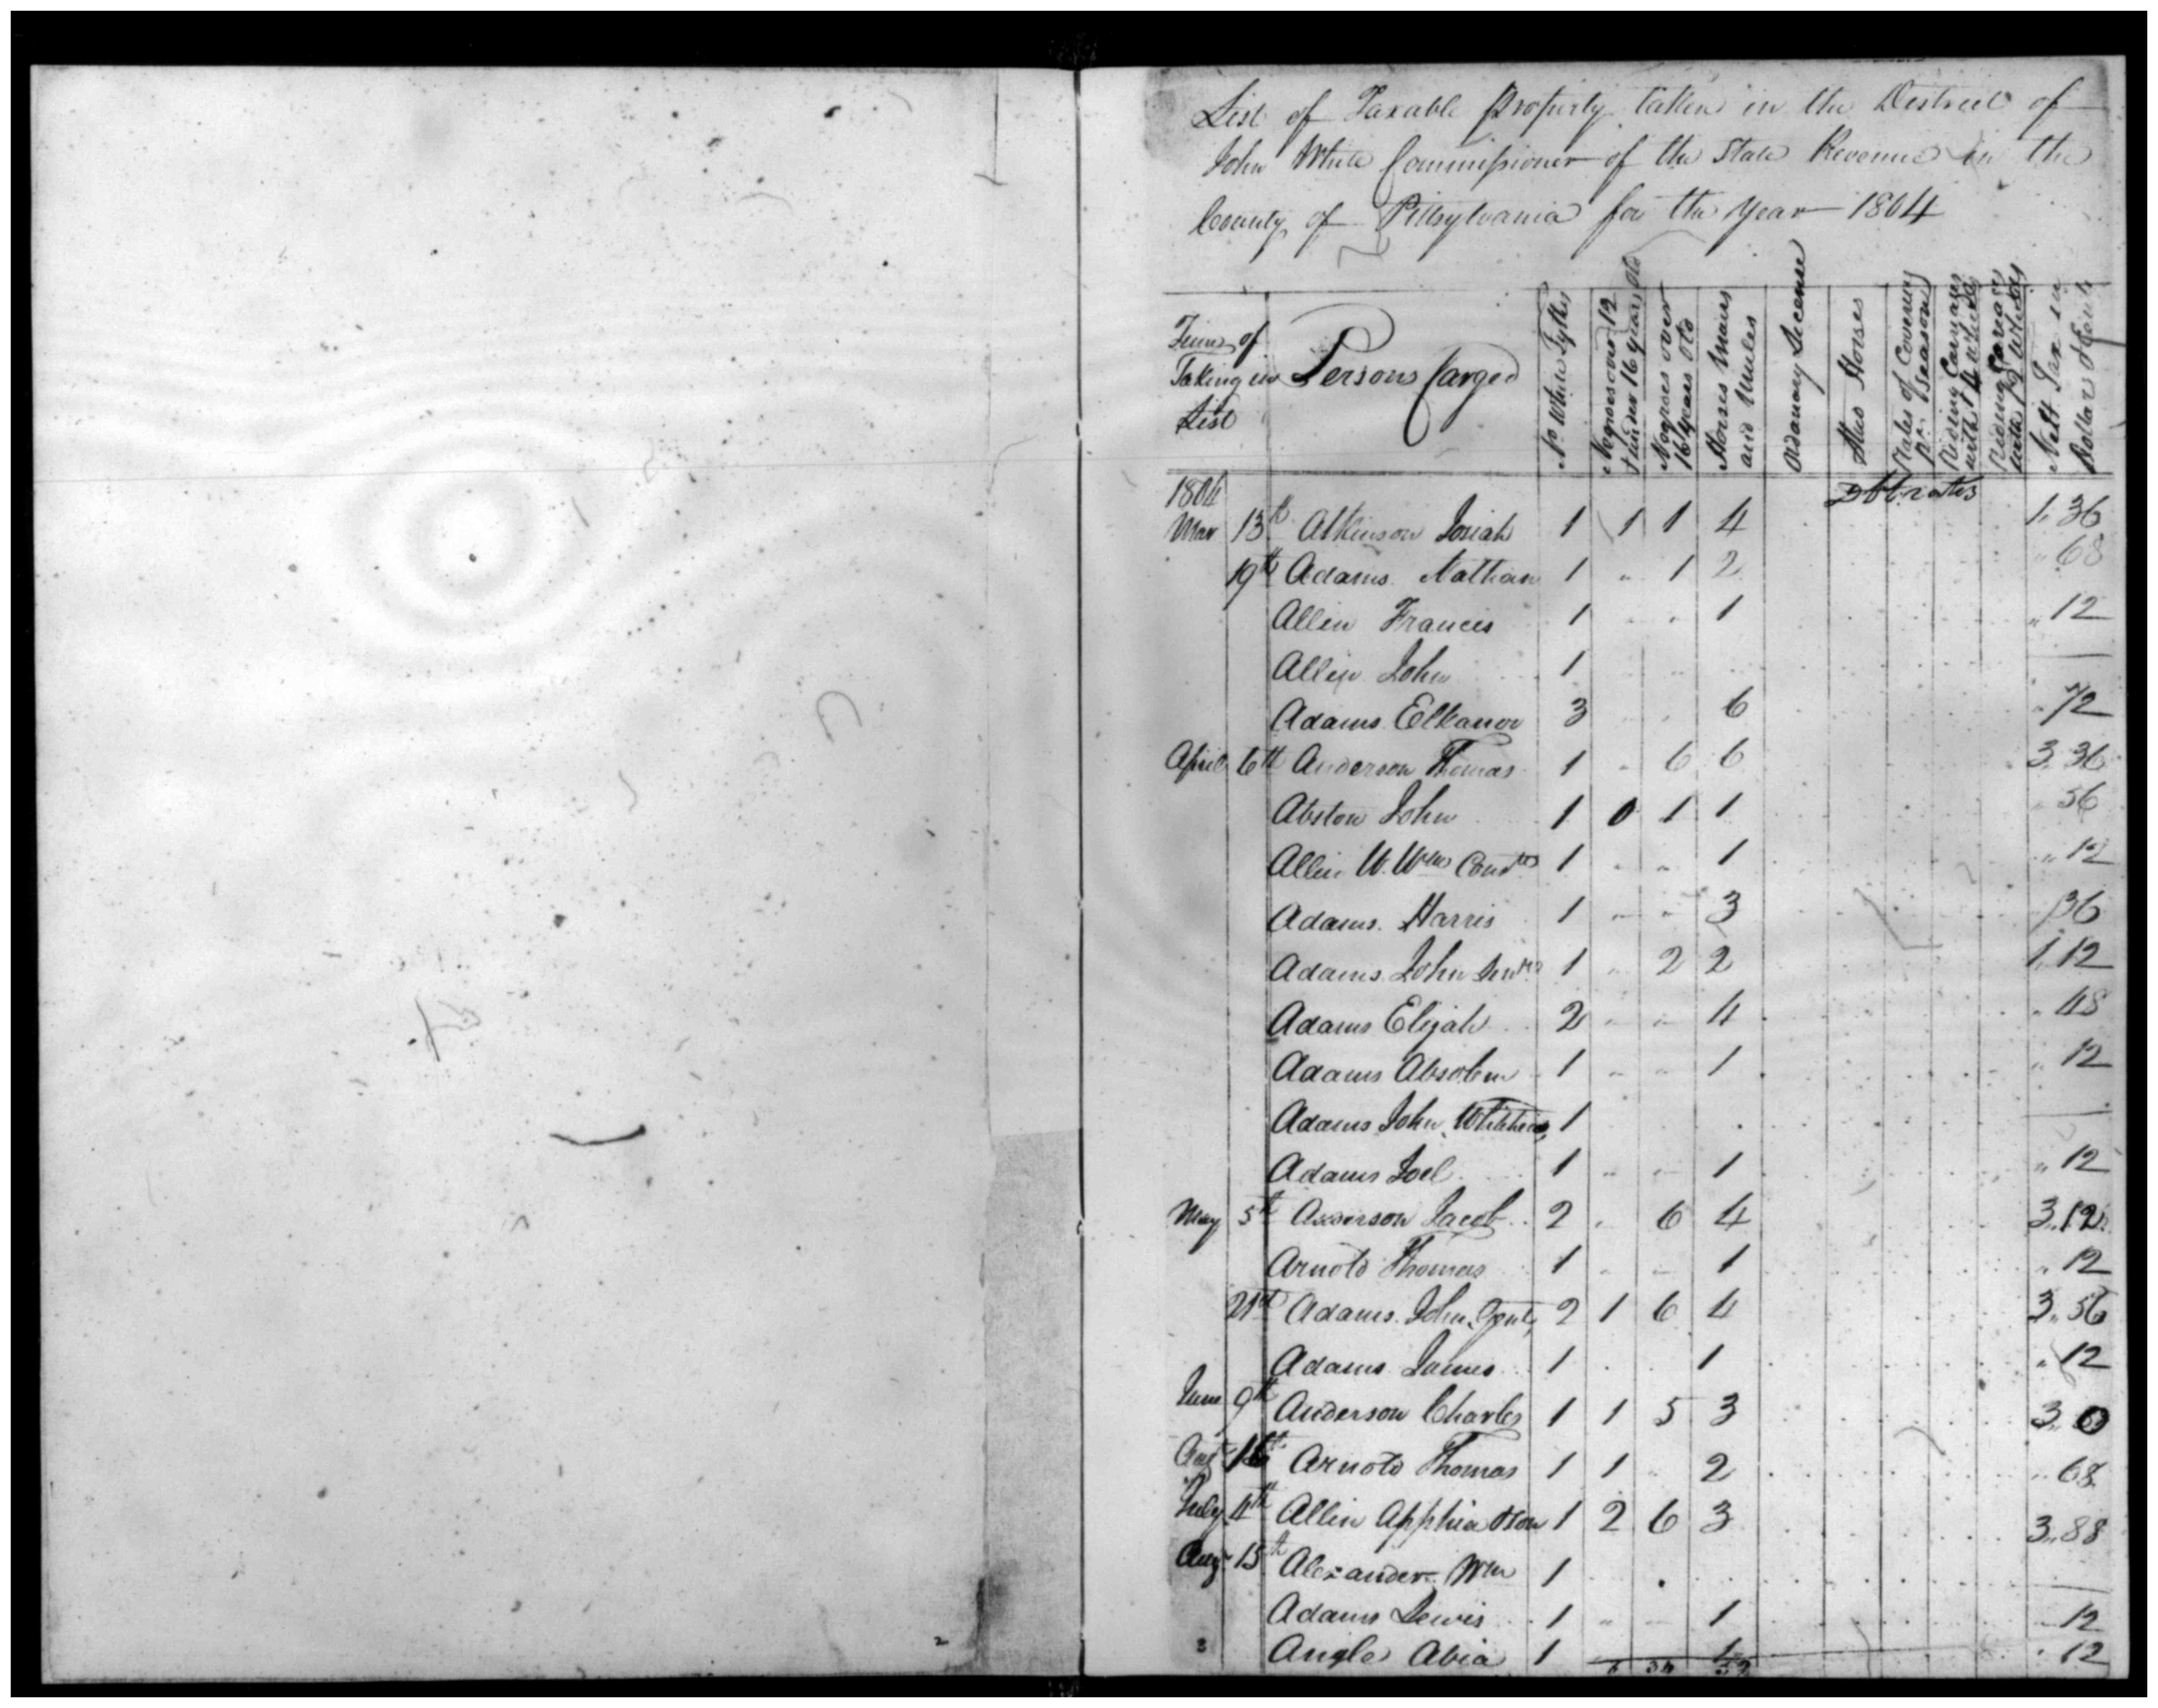 List of Taxable Property taken in the District of
John White Commissioner of the State Revenue in the
County of Pittsylvania for the Year 1804
Times of Taking in List
Persons Carged
No White Tythes
Negroes over 12 & under 16 years old
Negroes over 16 years old
Horses Mares and Mules
Ordanary License
Stud Horses
Rates of Covering pr. Season
Riding Carriages with 4 Wheels
Riding Cariages with 2 Wheels
Nett Tax in Dollars & Cents
1804
Mar 13th Atkinson Josiah 1 1 1 4 1,36
19th Adams Nathan 1 " 1 2 " 68
Allen Francis 1 " " 1 " 12
Allen John 1
Adams Elkanor 3 6 " 72
April 6th Anderson Thomas 1 " 6 6 3,36
Abston John 1 0 1 1 " 56
Allen W. Wm 1 " " 1 " 12
Adams Harris 1 " " 3 " 36
Adams John 1 " 2 2 1,12
Adams Elijah 2 " " 4 " 48
Adams Absolem 1 " " 1 " 12
Adams John, 1
Adams Joel 1 " " 1 " 12
May 5th Anderson Jacob 2 " 6 4 3,,12
Arnold Thomas 1 " " 1 " 12
21st Adams John, 2 1 6 4 3,,56
Adams James 1 . . 1 " 12
June 9th Anderson Charles 1 1 5 3 3,, 0
Arnold Thomas 1 1 " 2 " 68
July 4th Allen Apphia 1 2 6 3 3,,88
Aug 15th Alexander Wm 1
Adams Lewis 1 " " 1 12
Angle Abia 1 1 " 12
3
2